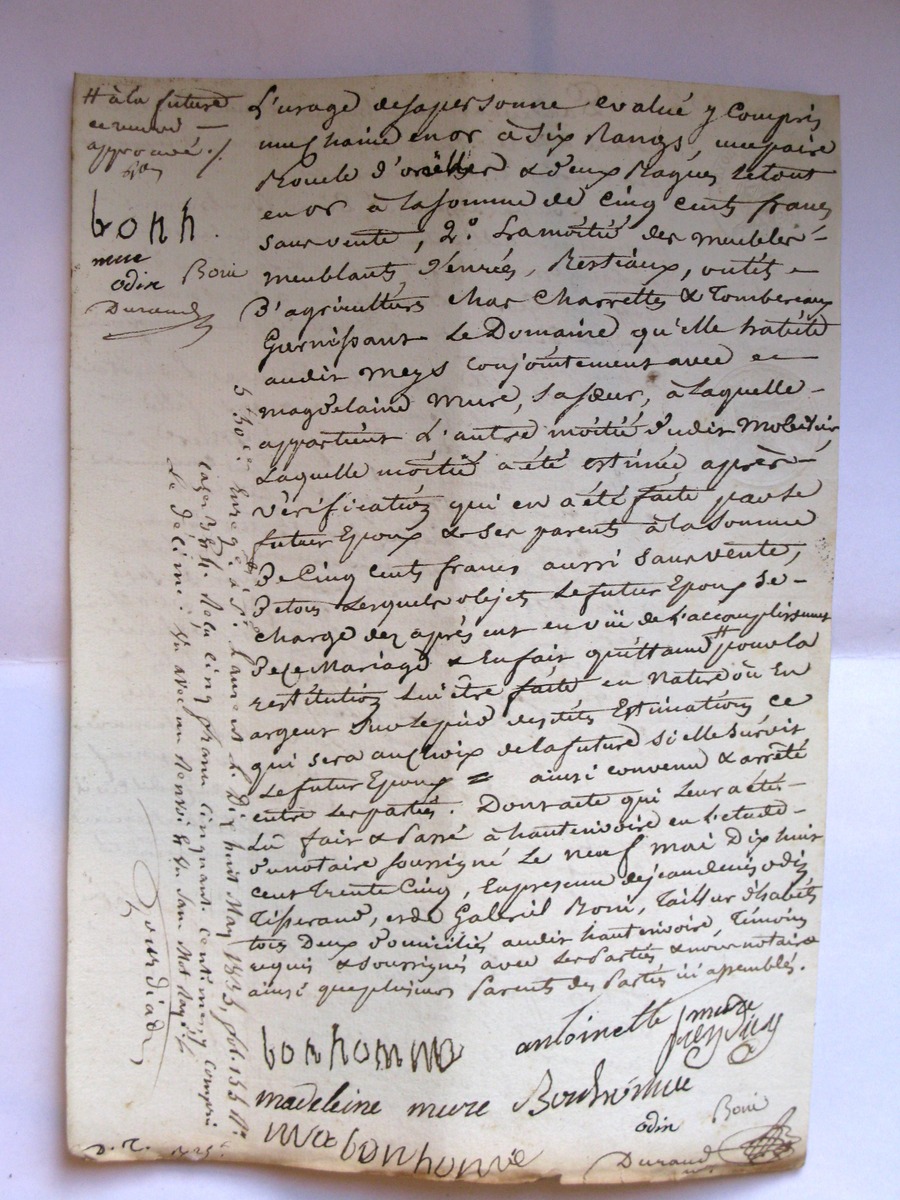 # à la future
ce renvoi
approuvé ./.
bonh
mure
odin Boni
Durand
L'usage de sa personne evalué y Compris
une chaine en or à Six Rangs, une paire
Boucle d'oreilles & deux Bagues le tout
en or à la somme de Cinq cents francs
sans vente, 2.° La moitié des meubles
meublants denrés, Bestiaux, outils
d'agriculture char Charrettes & Tombereaux
Garnissant Le Domaine qu'elle habite
audit meys conjointement avec
magdelaine mure, sa sœur, à laquelle
appartient L'autre moitié dudit Mobilier
Laquelle moitié a été estimée après
vérification qui en a été faite par le
futur Epoux & ses parents à la somme
De Cinq cents francs aussi sans vente,
De tous lesquels objets Le futur Epoux se
charge dez après et en vüe de L'accomplissement
De ce Mariage & En fait quittance # pour la
restitution lui être faite en Nature ou En
argent sur le pied desdites Estimations ce
qui sera au Choix de la future si elle survit
Le futur Epoux = ainsi convenu & arrêté
entre les parties. Dont acte qui leur a été
Lû fait & Passé à hauterivoire en L'etude
du notaire soussigné Le neuf mai Dix huit
cent trente Cinq, En presence de jean denis odin
Tisserand, et de Gabriel Boni, Tailleur d'habits
tous Deux domiciliés audit hauterivoire, Témoins
requis & soussignés avec les Parties & nous notaire
ainsi que plusieurs Parents des Parties ici assemblés.
bonhomme antoinette mure
madeleine mure
odin Boni
bonhomme
Durand
Enregé à St. Laurent le Dix huit May 1835, fol. 155 Vo
cases 3 & 4. Reçu cinq francs cinquante centimes compris
Le décime.